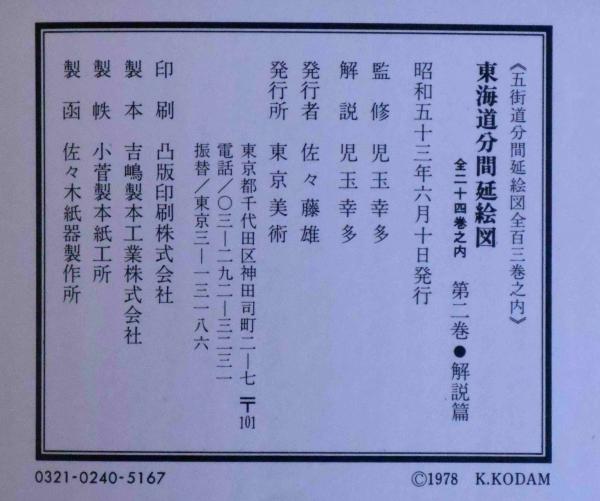 《五街道分間延絵図全百三巻之内》
東海道分間延絵図 全二十四巻之内 第二巻●解説篇
昭和五十三年六月十日発行
監修 児玉幸多
解説 児玉幸多
発行者 佐々藤雄
発行所 東京美術
東京都千代田区神田司町二―七 〒101
電話/〇三―二九二―三二三一
振替/東京三―一三一八六
印刷 凸版印刷株式会社
製本 吉嶋製本工業株式会社
製帙 小菅製本紙工所
製函 佐々木紙器製作所
0321-0240-5167
©1978 K.KODAM